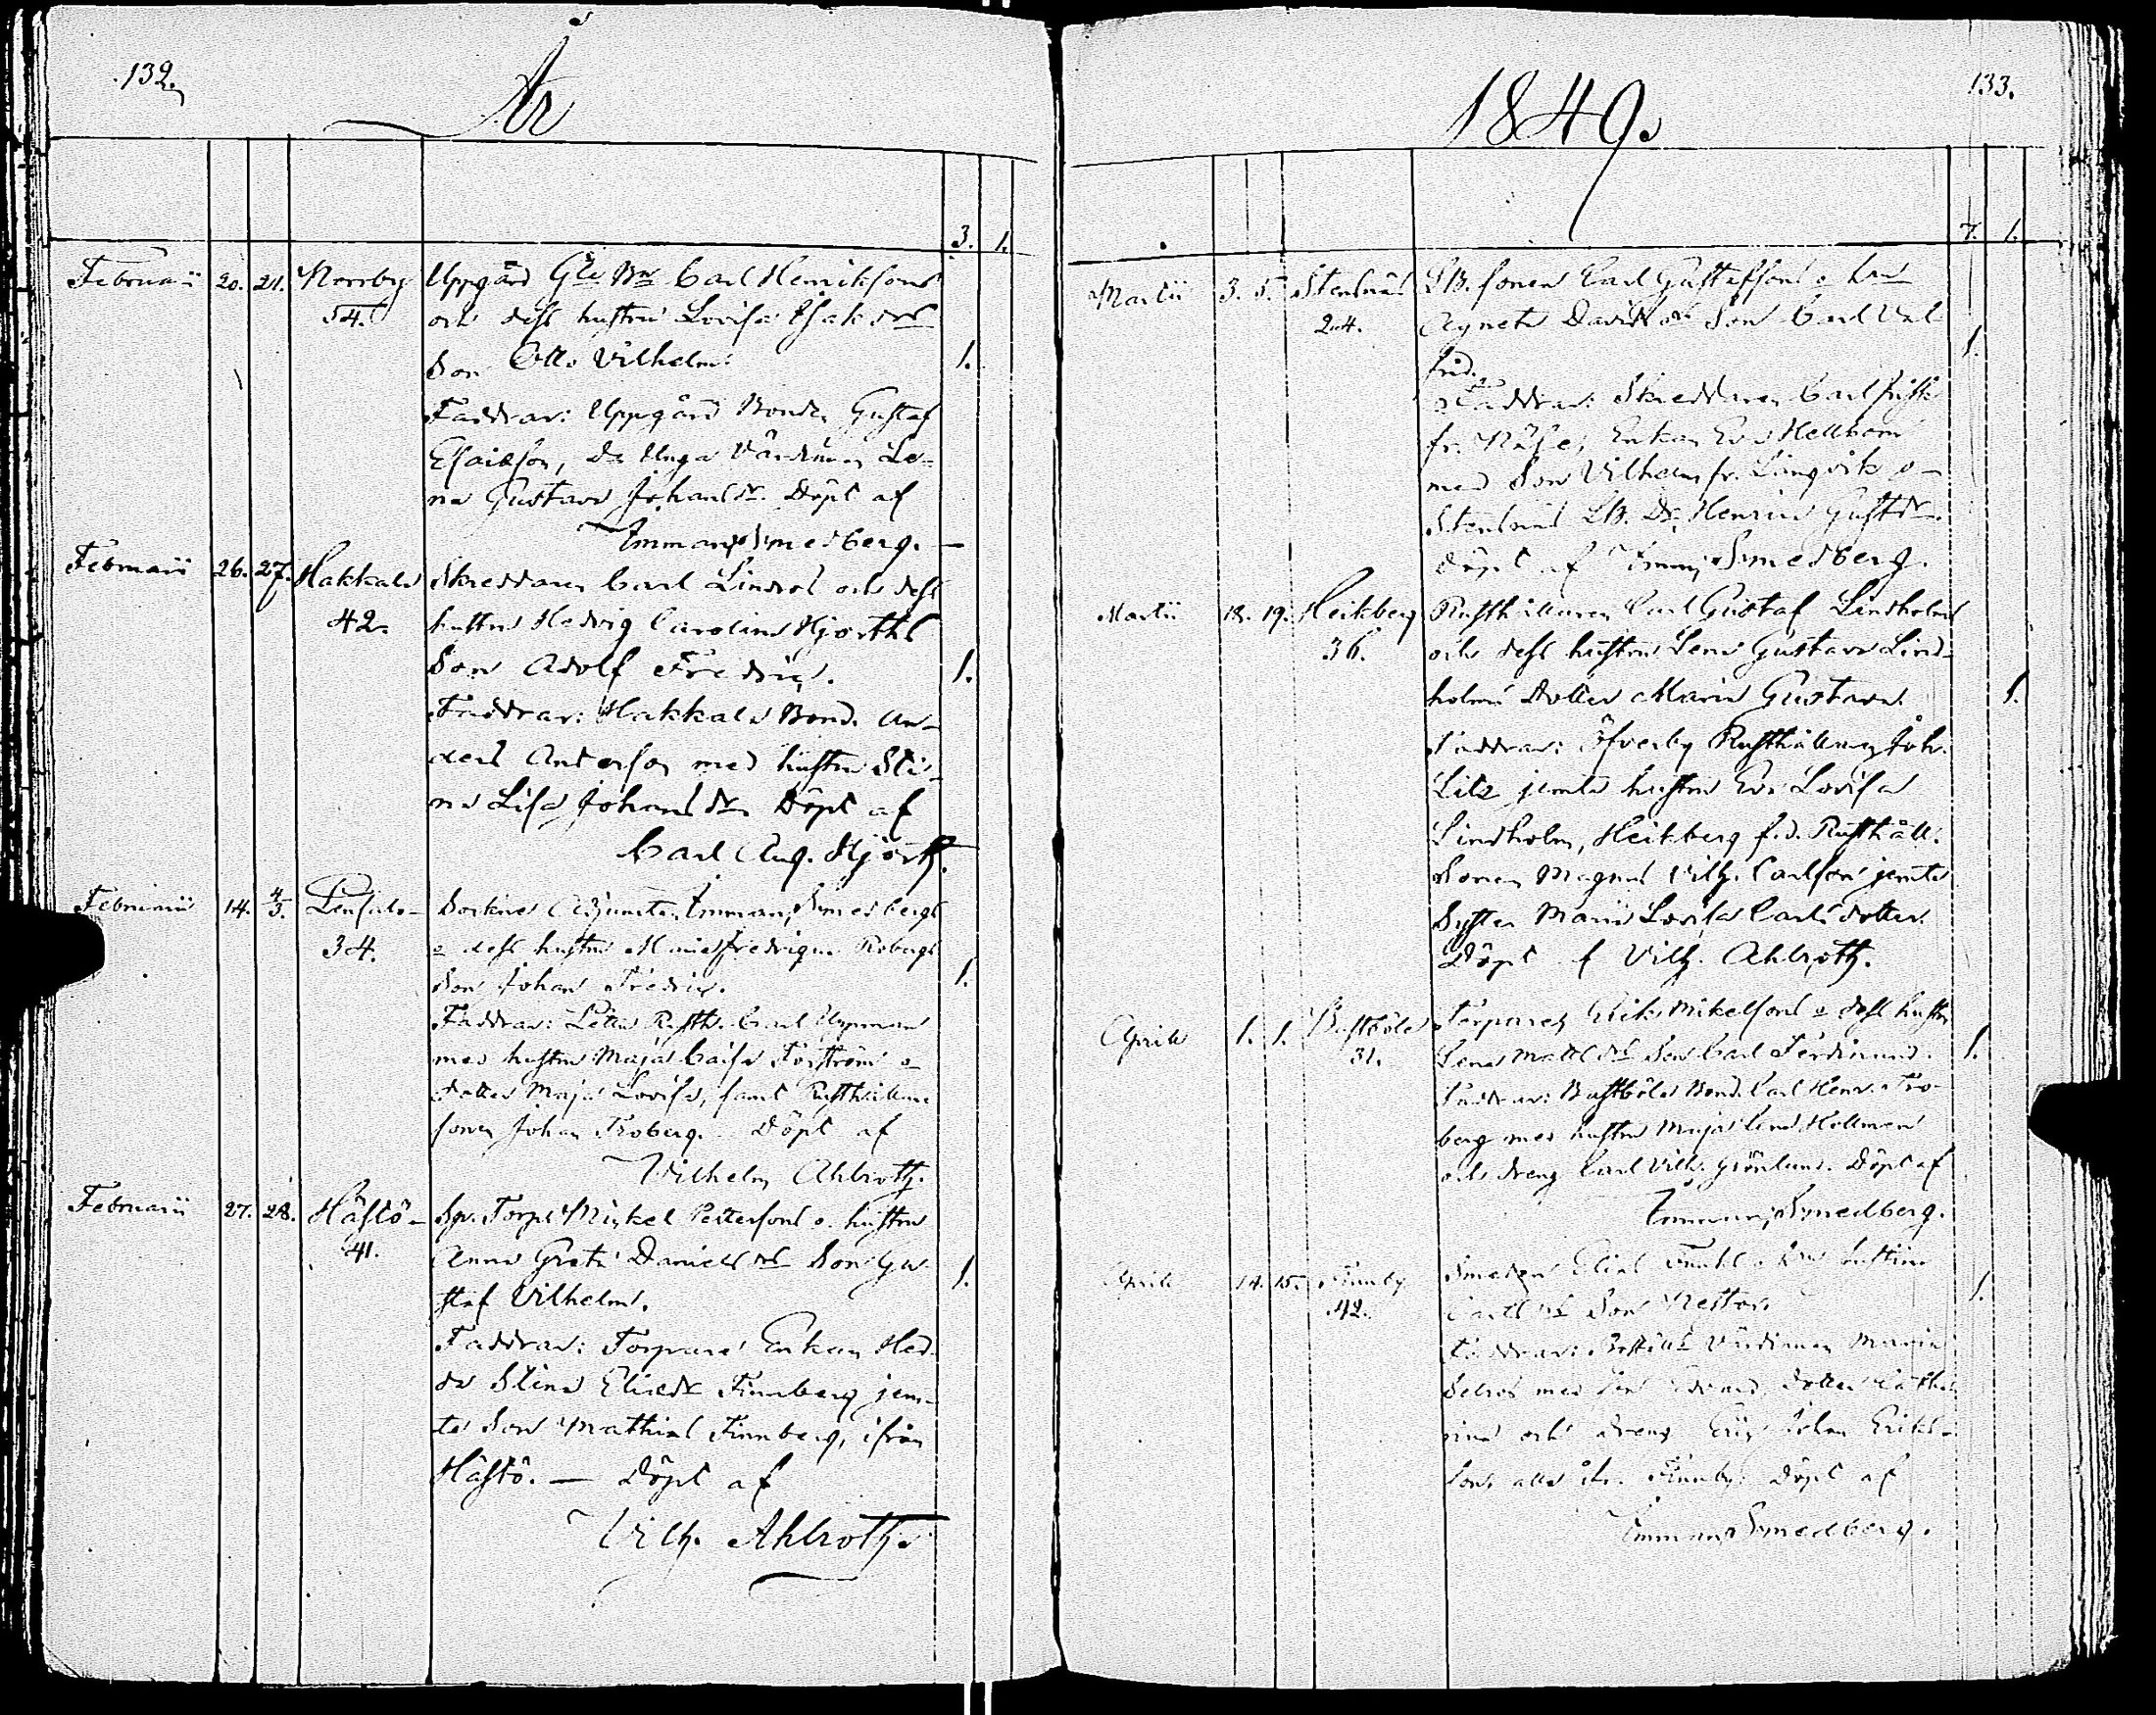 132.
År
3. 1.
Februarii 20. 21. Norrby Uppgård Gle Bn Carl Henriksons
54. och dess hustru Lovisa Esaksdrs
Son Otto Vilhelm. 1.
Faddrar: Uppgård Bonden Gustaf
Esaikson, Le-
na Gustava Johansdr. Döpt af
Imman. Smedberg.
Februarii 26. 27. Hakkala Skreddaren Carl Lindros och dess
42. hustru Hedvig Carolina Hjorths
Son Adolf Fredric. 1.
Faddrar: Hakkala Bond. An-
ders Anderson med hustru Sti-
na Lisa Johansdr. Döpt af
Carl Aug. Hjorth.
Februarii 14. 4/3. Sockne Adjuncten Imman. Smedbergs
34. o dess hustru Maria Fredrique Robergs
Son Johan Fredric. 1.
Faddrar: Rusth. Carl
med hustru Maja Caisa Forström o
dotter Maja Lovisa, samt Rusthållare
sonen Johan Froberg. Döpt af
Vilhelm Ahlroth.
Februarii 27. 28. Hästö- Sp. Torp. Mickel Pettersons o. hustru
41. Anna Greta Danielsdrs Son Gu-
staf Vilhelm. 1.
Faddrar: Torpare Enkan Hed-
da Stina Eliædr Finnberg jem-
te Son Mathias Finnberg, ifrån
Hästö. — Döpt af
Vilh. Ahlroth.
133.
1849.
7. 1.
Martii 3. 5. Stensnäs LB. sonen Carl Gustafsons o hu
24. Agneta Davidsdrs Son Carl Val-
frid. 1.
Faddrar: Skreddaren Carl
fr. Näse, Enkan Eva Hellbom
med Son Vilhelm fr. Långvik o
Stensnäs LB. Dr. Henrica Gustdr.
Döpt af Imman. Smedberg.
Martii 18. 19. Heikberg Rusthållaren Carl Gustaf Lindholms
36. och dess hustru Lena Gustava Lind-
holms Dotter Maria Gustava. 1.
Faddrar: Öfverby Rusthållaren Joh.
Litz jemte hustru Eva Lovisa
Lindholm, Heikberg f.d. Rusthåll.
Sonen Magnus Vilh. Carlson jemte
Syster Maria Lovisa Carlsdotter.
Döpt af Vilh. Ahlroth.
Aprilis 1. 1. Bastböle Torparen Erik Mikelsons o dess hustru
31. Lena Mattsdrs Son Carl Ferdinand. 1.
Faddrar: Bastböle Bond. Carl Henr. Fro-
berg med hustru Maja Lena Hellman
och dreng Carl Vilh. Grönlund. Döpt af
Imman. Smedberg.
Aprilis 14. 15. Finnby Smeden Elias o hu
42. Carlsdrs Son Nestor. 1.
Faddrar: Värdinnan Maria
Selros med Son dotter Catha-
rina och dreng Eric Johan Eriks-
son, alla ifr. Finnby. Döpt af
Imman. Smedberg.